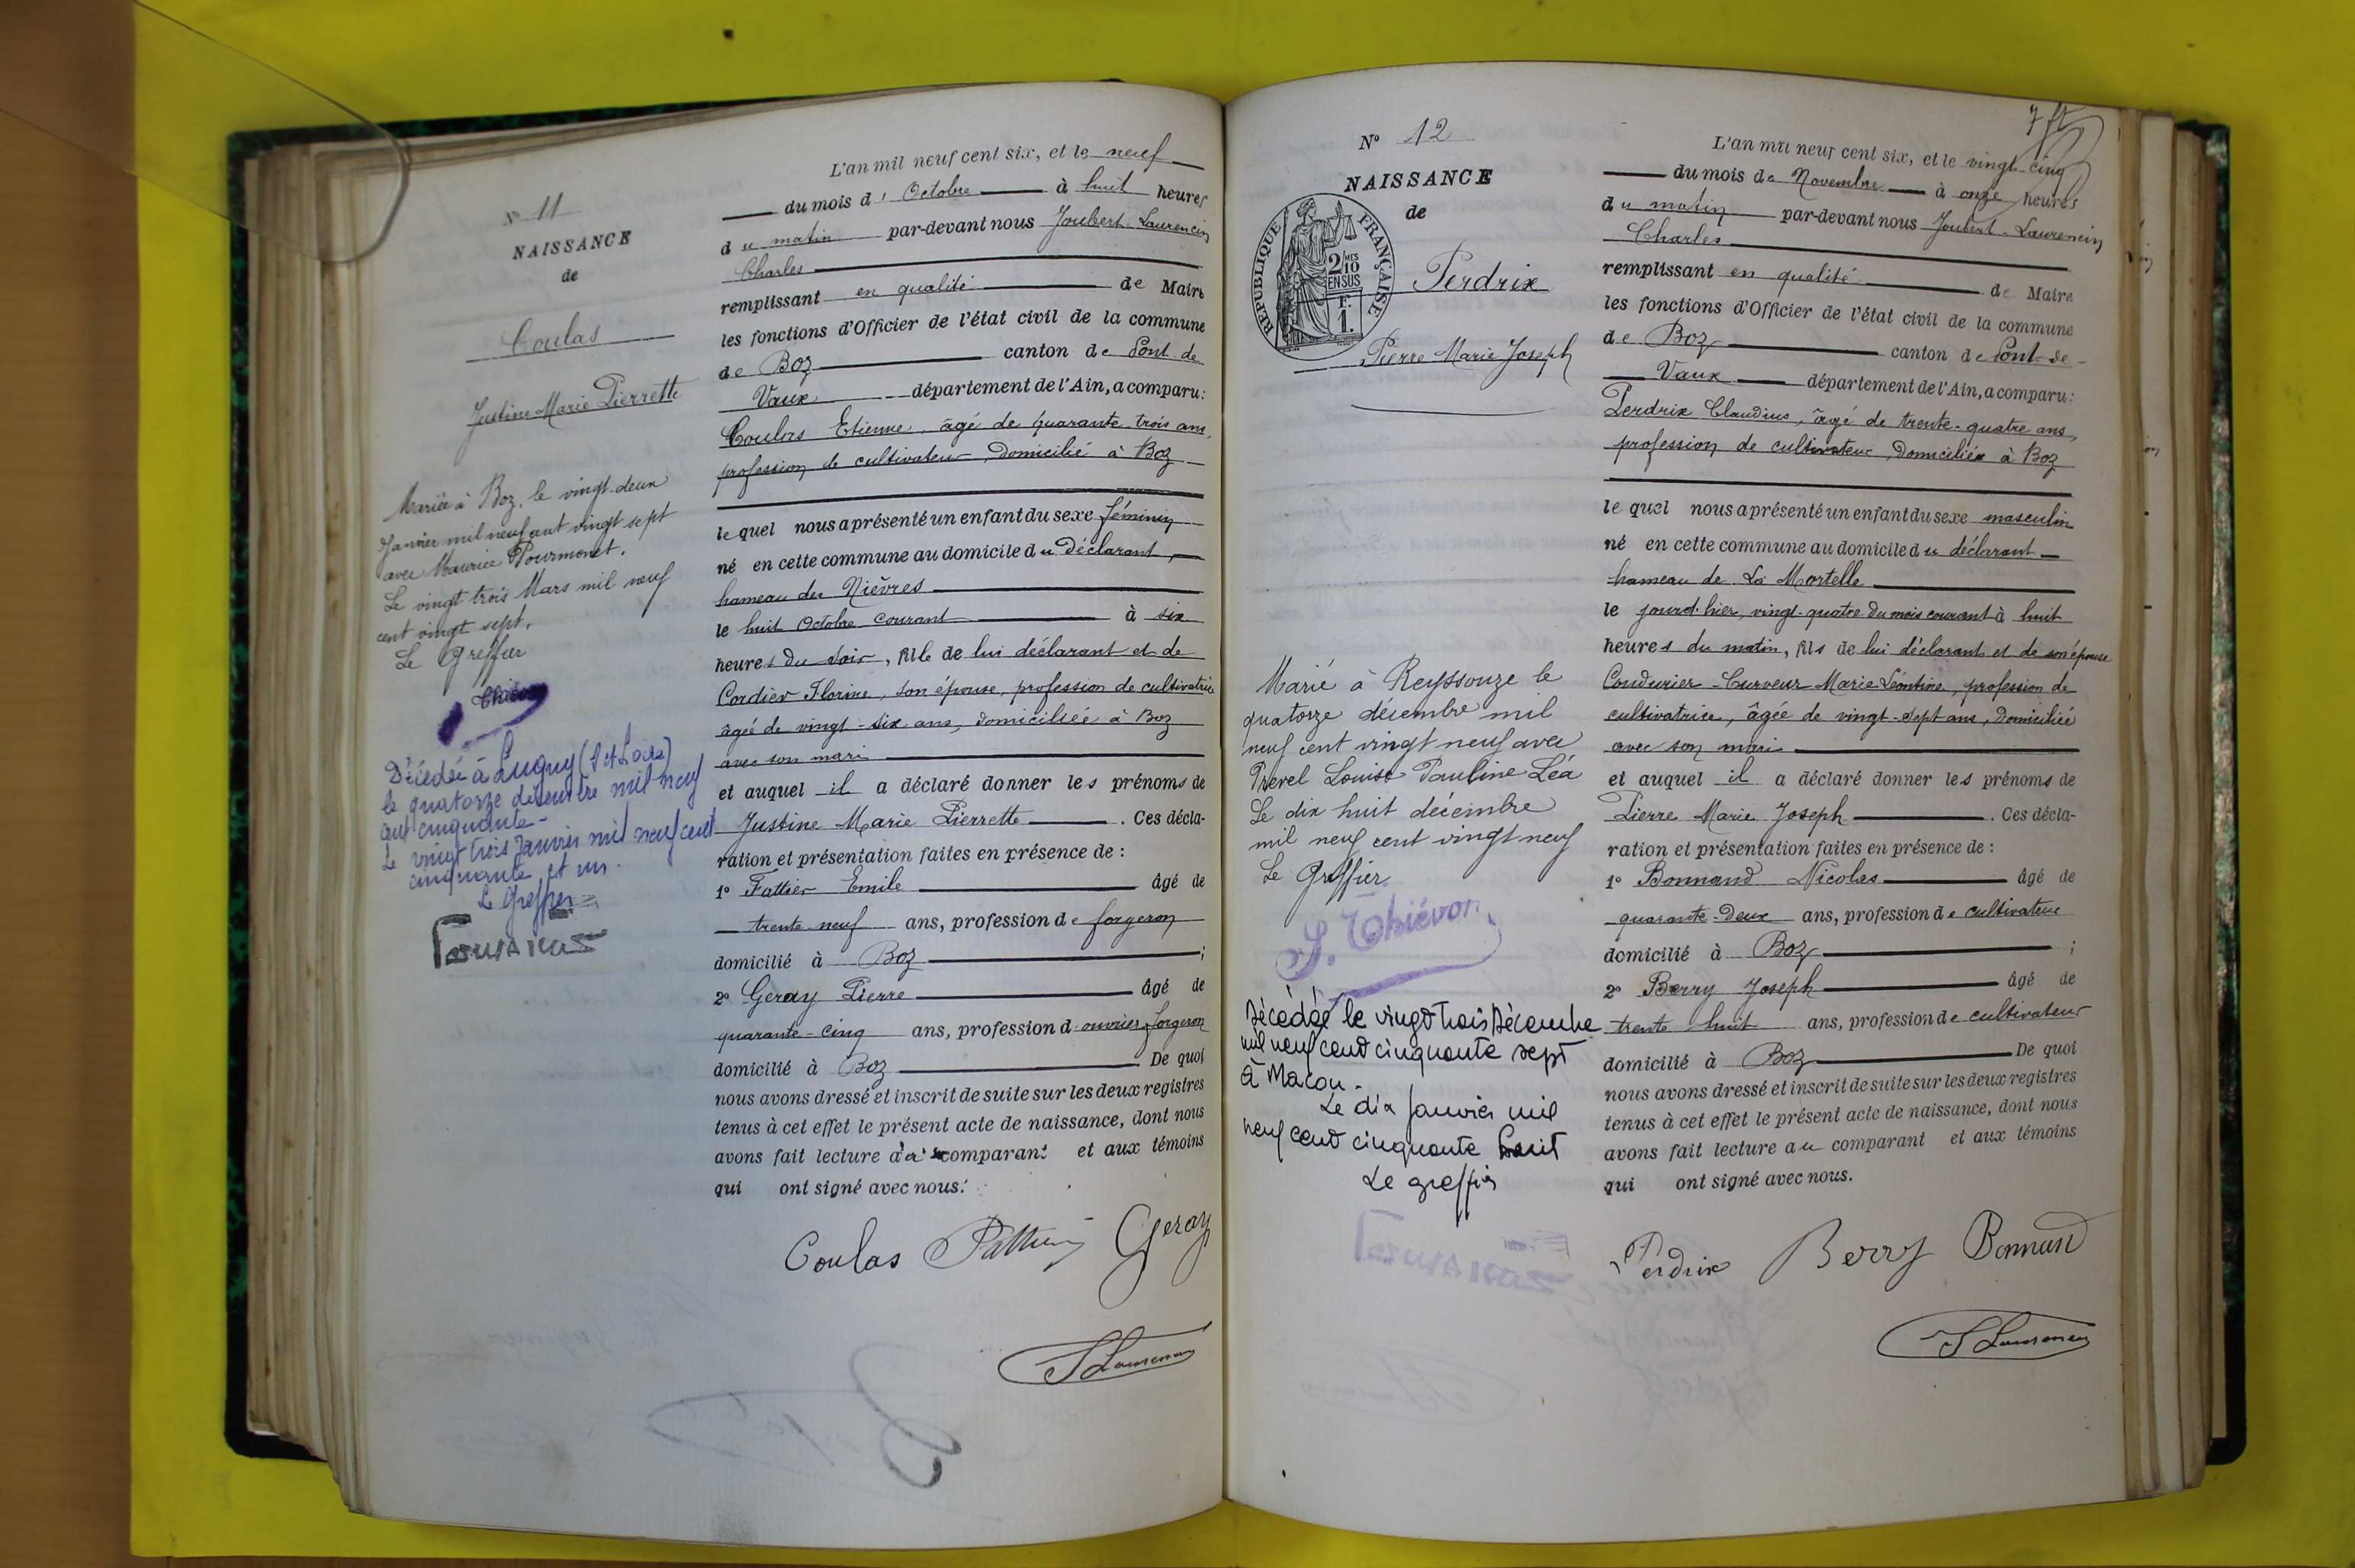 N° 11
NAISSANCE
de
Coulas
Justine Marie Pierrette
Mariée à Boz, le vingt-deux
Janvier mil neuf cent vingt sept
avec Maurice Pourmonet.
Le vingt trois Mars mil neuf
cent vingt sept.
Le Greffier
Thiévon
Décédée à Lugny (S et Loire)
le quatorze décembre mil neuf
cent cinquante -
Le vingt trois Janvier mil neuf cent
cinquante et un.
Le Greffier
L'an mil neuf cent six, et le neuf
du mois d' Octobre à huit heures
du matin par-devant nous Joubert-Laurencin
Charles
remplissant en qualité de Maire
les fonctions d'Officier de l'état civil de la commune
de Boz canton de Pont-de-
Vaux département de l'Ain, a comparu:
Coulas Etienne, âgé de quarante-trois ans,
profession de cultivateur, domicilié à Boz
le quel nous a présenté un enfant du sexe féminin
né en cette commune au domicile du déclarant,
hameau des Nièvres
le huit Octobre courant à six
heures du soir, fille de lui déclarant et de
Cordier Florine, son épouse, profession de cultivatrice
âgée de vingt-six ans, domiciliée à Boz
avec son mari
et auquel il a déclaré donner les prénoms de
Justine Marie Pierrette . Ces décla-
ration et présentation faites en présence de :
1° Fattier Emile âgé de
trente neuf ans, profession de forgeron
domicilié à Boz ;
2° Geray Pierre âgé de
quarante-cinq ans, profession d ouvrier forgeron
domicilié à Boz De quoi
nous avons dressé et inscrit de suite sur les deux registres
tenus à cet effet le présent acte de naissance, dont nous
avons fait lecture au comparant et aux témoins
qui ont signé avec nous.
Coulas Geray
N° 12
NAISSANCE
de
RÉPUBLIQUE FRANÇAISE
2/10 MES
EN SUS
F.
1.
Perdrix
Pierre Marie Joseph
Marié à Reyssouze le
quatorze décembre mil
neuf cent vingt neuf avec
Prevel Louise Pauline Léa
Le dix huit décembre
mil neuf cent vingt neuf
Le Greffier
S. Thiévon
Décédée le vingt trois Décembre
mil neuf cent cinquante sept
à Macon.
Le dix Janvier mil
neuf cent cinquante huit
Le greffier
L'an mil neuf cent six, et le vingt-cinq
du mois de Novembre à onze heures
du matin par-devant nous Joubert-Laurencin
Charles
remplissant en qualité de Maire
les fonctions d'Officier de l'état civil de la commune
de Boz canton de Pont-de-
Vaux département de l'Ain, a comparu:
Perdrix Claudius, âgé de trente-quatre ans,
profession de cultivateur, domicilié à Boz
le quel nous a présenté un enfant du sexe masculin
né en cette commune au domicile du déclarant
hameau de La Mortelle
le jourd'hier, vingt-quatre du mois courant à huit
heures du matin, fils de lui déclarant et de son épouse
Coudurier-Curveur Marie Léontine, profession de
cultivatrice, âgée de vingt-sept ans, domiciliée
avec son mari
et auquel il a déclaré donner les prénoms de
Pierre Marie Joseph . Ces décla-
ration et présentation faites en présence de :
1° Bonnand Nicolas âgé de
quarante-deux ans, profession de cultivateur
domicilié à Boz ;
2° Berry Joseph âgé de
trente huit ans, profession de cultivateur
domicilié à Boz De quoi
nous avons dressé et inscrit de suite sur les deux registres
tenus à cet effet le présent acte de naissance, dont nous
avons fait lecture au comparant et aux témoins
qui ont signé avec nous.
Perdrix Berry Bonnand
JLaurencin